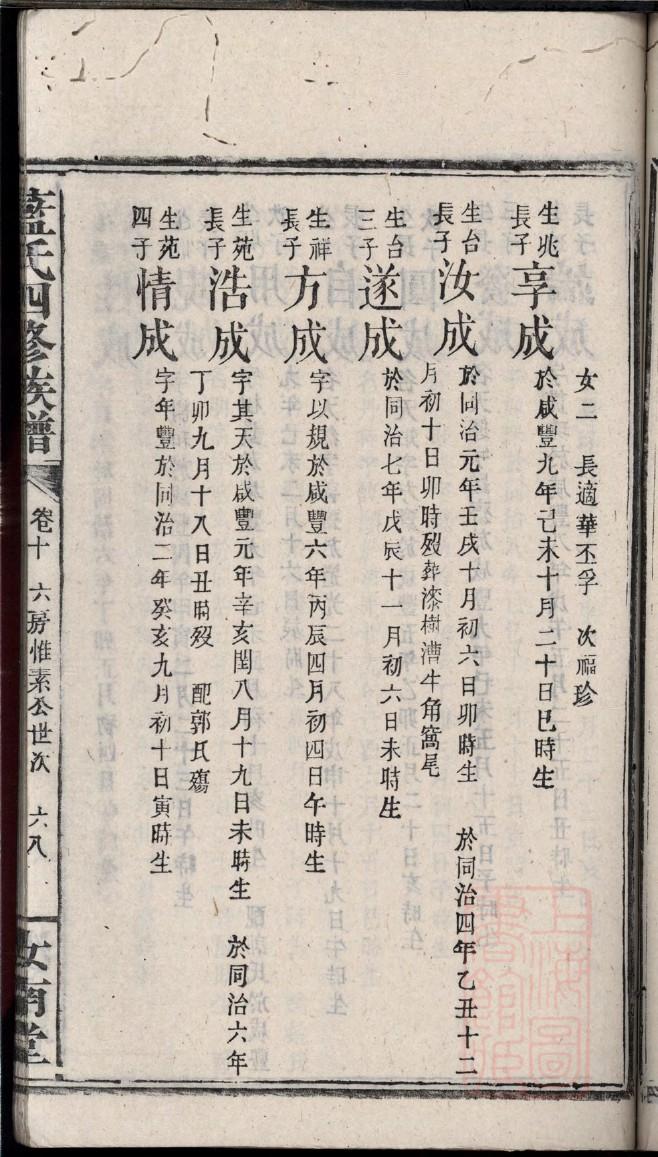 女二　長適華丕孚　次福珍
生兆長子享成於咸豐九年己未十月二十日巳時生
生台長子汝成於同治元年壬戌十月初六日卯時生　於同治四年乙丑十二
月初十日卯時歿葬漆樹漕牛角窩尾
生台三子遂成於同治七年戊辰十一月初六日未時生
生祥長子方成字以規於咸豐六年丙辰四月初四日午時生
生苑長子浩成字其天於咸豐元年辛亥閏八月十九日未時生　於同治六年
丁卯九月十八日丑時歿　配郭氏殤
生苑四子情成字年豐於同治二年癸亥九月初十日寅時生
藍氏四修族譜　卷十　六房惟素公世次　六八　汝南堂
上海圖書館藏